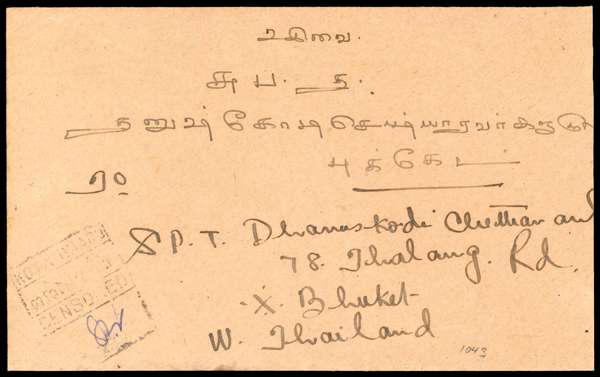 உ சிவமை.
சு ப. த.
தனுஷ் கோடி செட்டியாரவர்களுக்கு
புக்கேட்
P. T. Dhanuskodi Chettiar and
78. Thalang. Rd.
X. Bhuket
W. Thailand
CENSORED
1043